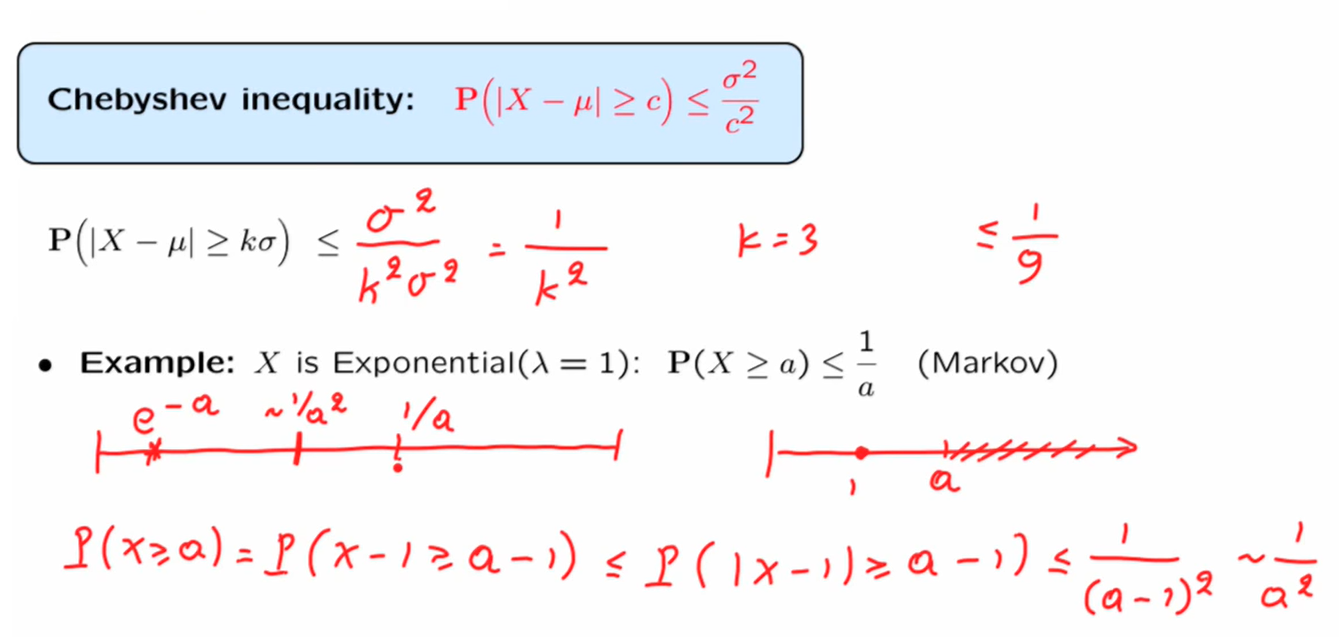 Chebyshev inequality: P(|X − μ| ≥ c) ≤ σ²/c²
P(|X − μ| ≥ kσ) ≤ σ²/k²σ² = 1/k² k = 3 ≤ 1/9
• Example: X is Exponential(λ = 1): P(X ≥ a) ≤ 1/a (Markov)
e^−a ~1/a² 1/a
1 a
P(X≥a) = P(X−1 ≥ a−1) ≤ P(|X−1| ≥ a−1) ≤ 1/(a−1)² ~ 1/a²